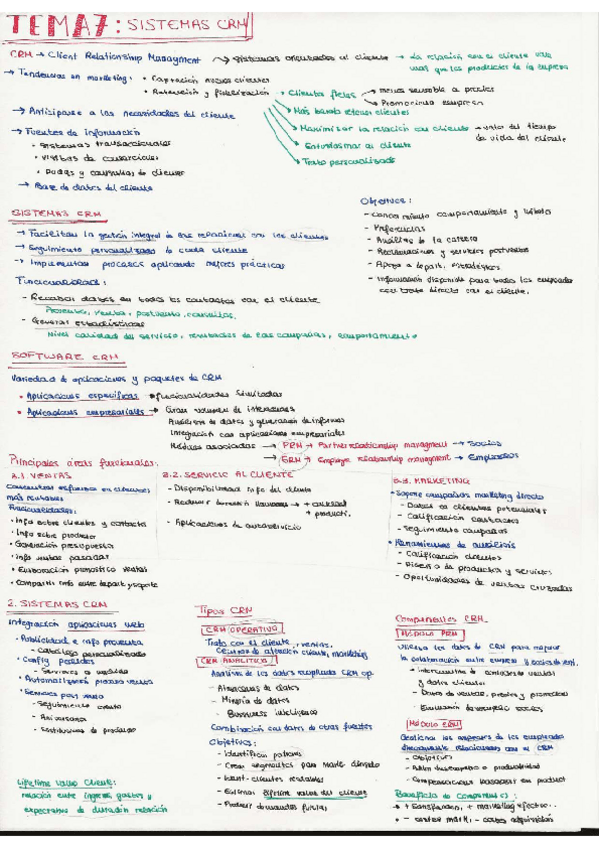 TEMA7: SISTEMAS CRM
CRM → Client Relationship Managment → Sistemas orientados al cliente → La relación con el cliente vale
más que los productos de la empresa
→ Tendencias en marketing: • Captación nuevos clientes
• Retención y fidelización → Clientes fieles → menos sensible a precios
→ Promociona empresa
→ Más barato retener clientes
→ Anticiparse a las necesidades del cliente
→ Maximizar la relación con cliente → valor del tiempo
de vida del cliente
→ Fuentes de información
• Sistemas transaccionales
→ Entusiasmar al cliente
• Visitas de comerciales
→ Trato personalizado
• Dudas y consultas de clientes
→ Base de datos del cliente
SISTEMAS CRM
→ Facilitan la gestión integral de las relaciones con los clientes
→ Seguimiento personalizado de cada cliente
→ Implementan procesos aplicando mejores prácticas
Funcionalidad:
- Recabar datos en todos los contactos con el cliente
Preventa, venta, postventa, consultas
- Generar estadísticas
Nivel calidad del servicio, resultados de las campañas, comportamiento
Objetivos:
- Conocimiento comportamiento y hábitos
- Preferencias
- Análisis de la cartera
- Reclamaciones y servicios postventa
- Apoyo a depart. estratégicos
- Información disponible para todos los empleados
con trato directo con el cliente.
SOFTWARE CRM
Variedad de aplicaciones y paquetes de CRM
• Aplicaciones específicas → funcionalidades limitadas
• Aplicaciones empresariales → Gran volumen de interacciones
Análisis de datos y generación de informes
Integración con aplicaciones empresariales
Módulos asociados → PRM → Partner relationship managment → Socios
→ ERM → Employee relationship managment → Empleados
Principales áreas funcionales:
2.1. VENTAS
Concentrar esfuerzo en clientes
más rentables
Funcionalidades:
• Info sobre clientes y contactos
• Info sobre producto
• Generación presupuesto
• Info ventas pasadas
• Elaboración pronóstico ventas
• Compartir info entre depart. y soporte
2.2. SERVICIO AL CLIENTE
- Disponibilidad info del cliente
- + calidad
+ product.
- Aplicaciones de autoservicio
2.3. MARKETING
• Soporte campañas marketing directo
- Datos a clientes potenciales
- Calificación contactos
- Seguimiento campañas
• Herramientas de análisis
- Calificación clientes
- Diseño de productos y servicios
- Oportunidades de ventas cruzadas
2. SISTEMAS CRM
Integración aplicaciones web
• Publicidad e info preventa
- Catálogo personalizado
• Config pedidos
- Servicios a medida
• Automatización proceso venta
• Servicios post venta
- Seguimiento
- Sustitución de producto
Lifetime value cliente:
relación entre ingresos gastos y
expectativa de duración relación
Tipos CRM
CRM OPERATIVO
Trato con el cliente, ventas,
centros de atención cliente, marketing
CRM ANALÍTICO
Análisis de los datos recopilados CRM op.
- Almacenes de datos
- Minería de datos
- Business inteligence
Combinación con datos de otras fuentes
Objetivos:
- Identificar patrones
- Crear segmentos para market dirigido
- Ident. clientes rentables
- Estimar lifetime value del cliente
- Predecir demandas futuras
Componentes CRM
MÓDULO PRM
Utiliza los datos de CRM para mejorar
la colaboración entre empresa y socios de vent.
• Intercambio de contactos de ventas
y datos clientes
- Datos de ventas, precios y promociones
- Evaluación de socios
MÓDULO ERM
Gestiona los aspectos de los empleados
directamente relacionados con el CRM
- Objetivos
- Admin desempeño o productividad
- Compensaciones basadas en product
Beneficio de Componentes:
→ + satisfacción, + marketing efectivo...